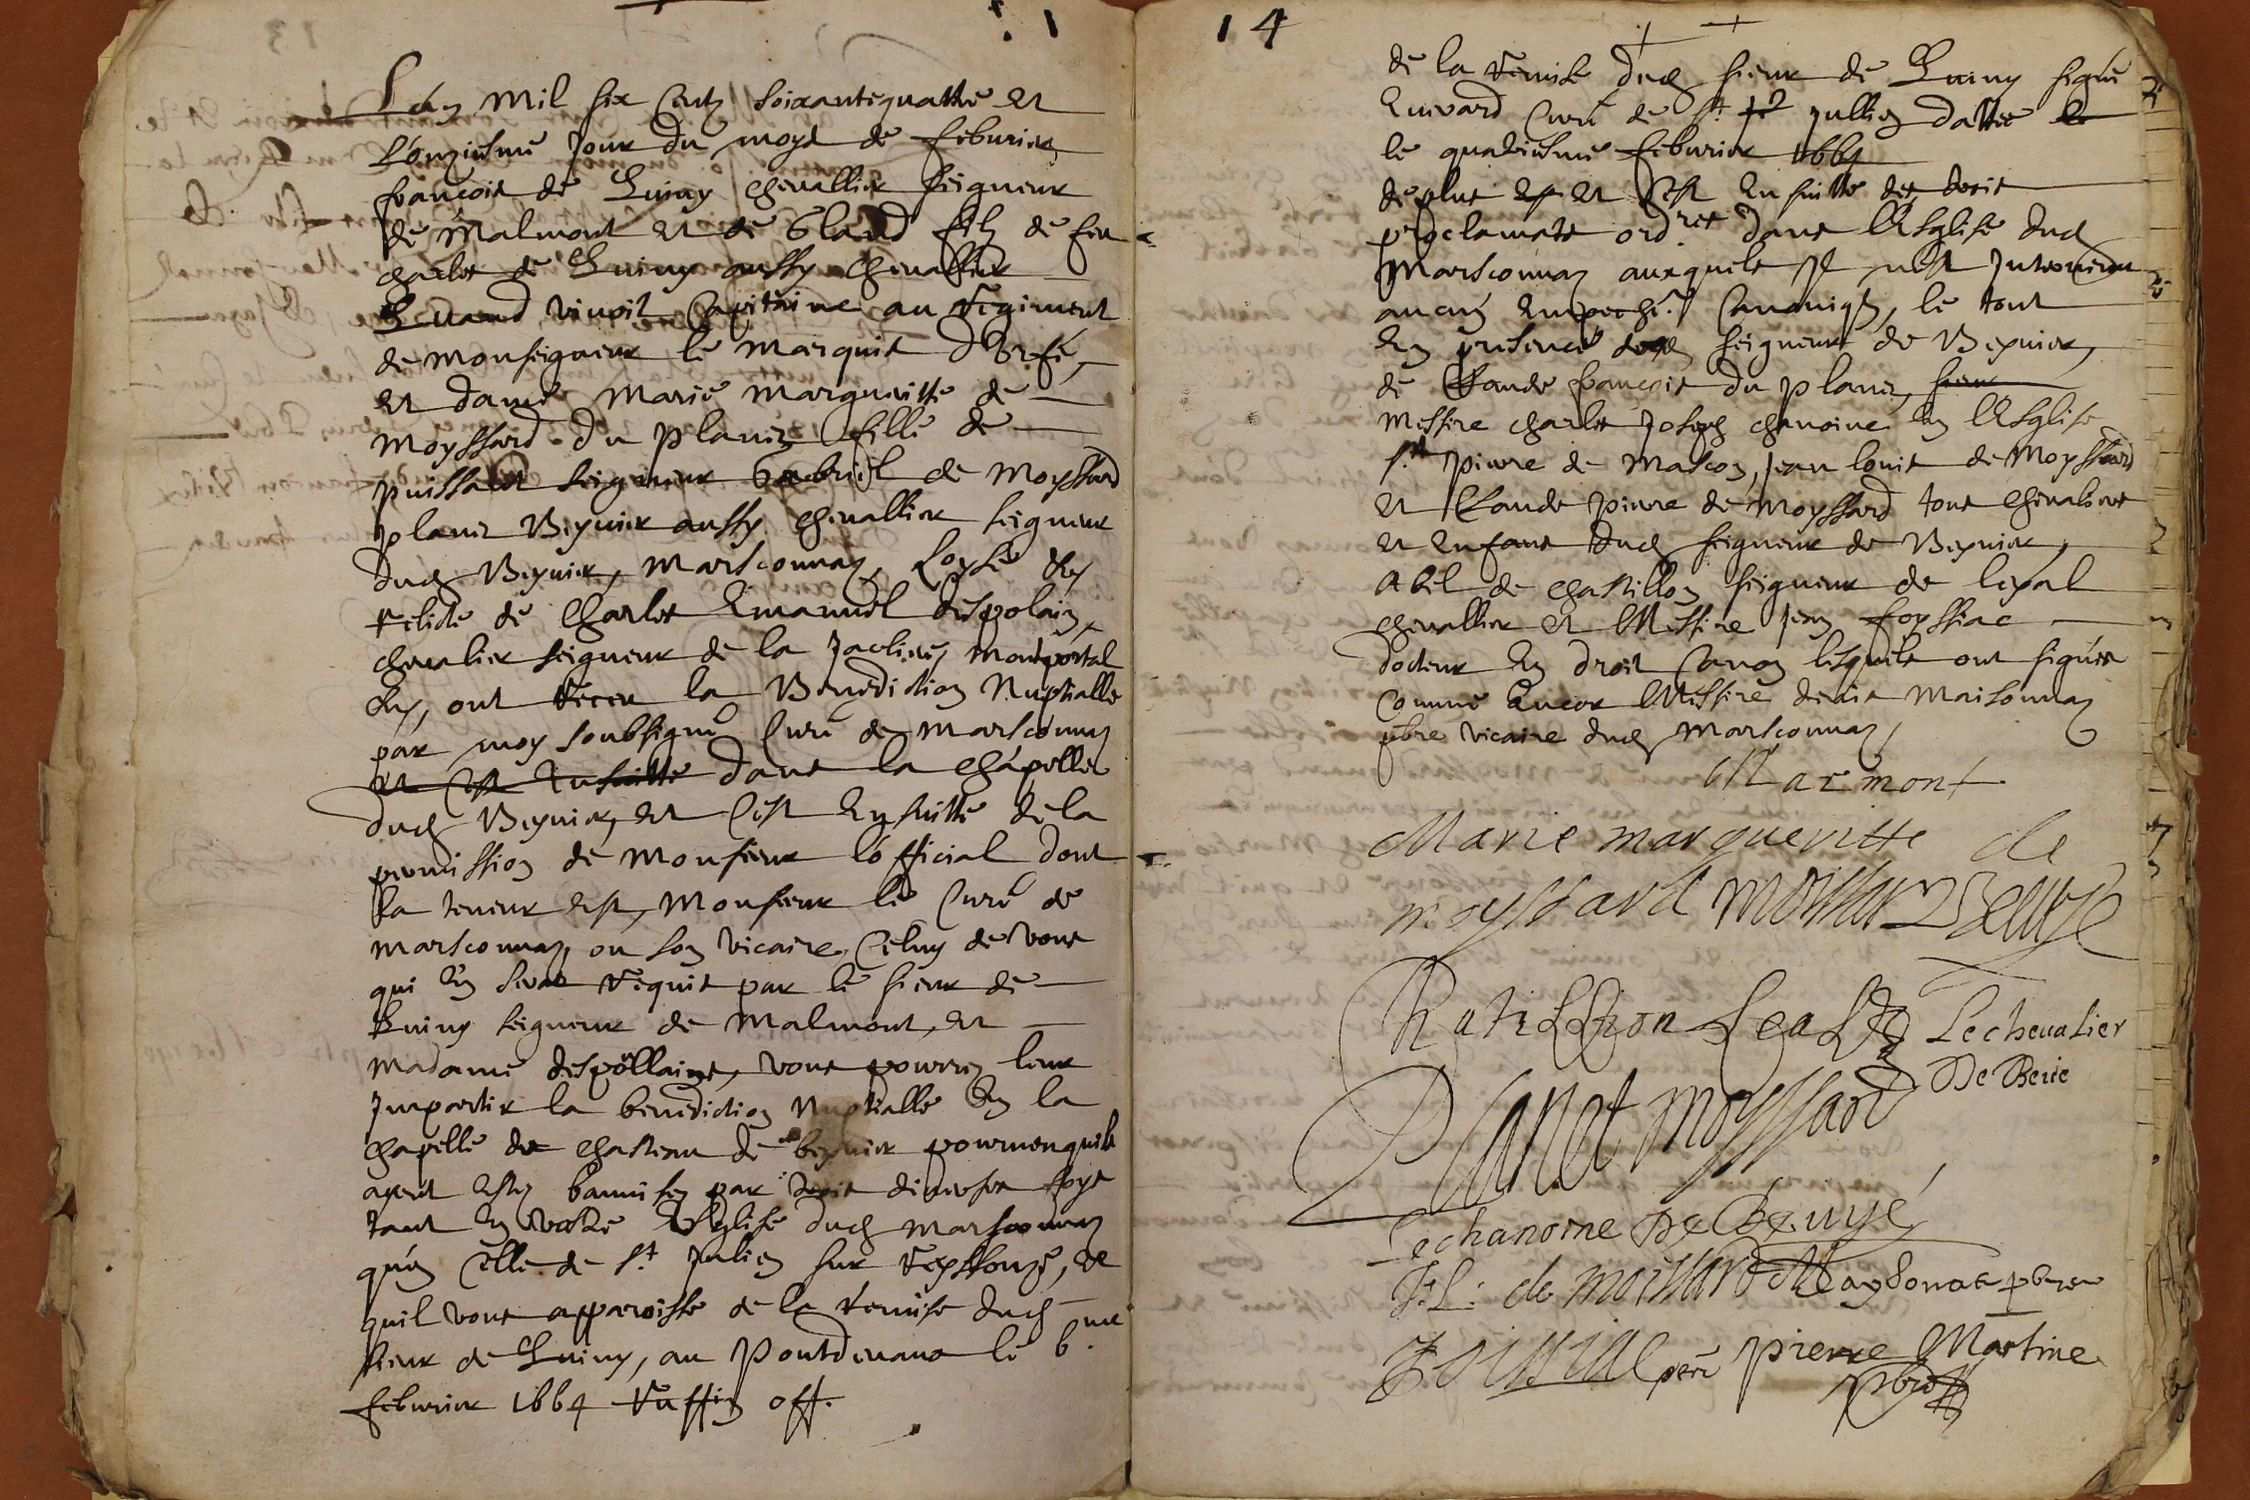 L'an mil six centz soixantequattre et
l'onziesme jour du moys de febvrier
françois de Luiny chevallier seigneur
de Malmont et de Gland filz de feu
charles de Luiny aussy chevallier
quand vivoit Capitaine au Regiment
de monseigneur le marquis d'Urfé,
et dame Marie margueritte de
moyssard du planez fille de
puissant seigneur Gabriel de moyssard
planez Beyvier aussy chevallier seigneur
dud Beyvier, marsconnaz, Loyse et
relicte de Charles Emanuel despolain,
chevalier seigneur de la Jacliniere, montportal
etc, ont Receu la Benediction Nuptialle
par moy soubsigné Curé de marsconnaz
et c'est ensuitte dans la chapelle
dud Beyvier, et c'est ensuitte de la
permission de monsieur l'official dont
la teneur est, Monsieur le Curé de
marsconnaz, ou son vicaire, Celuy de vous
qui en sera Requis par le sieur de
Luiny seigneur de Malmont, et
madame despollains, vous pourrez leur
Impartir la benediction Nuptialle en la
chapelle du chasteau de beyvier pourveuquils
ayent estez bannisez par trois diverses foys
tant en vostre Esglise dud marsconnaz
qu'en celle de St Julien sur Reyssouze, et
quil vous apparoisse de la Remise dud
sieur de Luiny, au Pontdevaux le 6.me
febvrier 1664 Ruffin off.
14
de la Remise dud sieur de Luiny signé
Curé de St Jullien dattée le
le quatriesme febvrier 1664
de plus et c'est ensuitte des trois
proclamats ord.res dans l'Esglise dud
Marsconnaz auxquels Il n'est Intervenu
aucun empeché.t Canoniq, le tout
en presence dud seigneur de Beyvier,
de Claude françois du planez, sieur
messire charles Joseph chanoine en l'Esglise
St pierre de Mascon, Jean louis de Moyssard
et Claude pierre de moyssard tous chevaliers
et enfans dud seigneur de Beyvier,
Abel de chastillon seigneur de lepal
chevallier et Messire Jean foyssiac
docteur en droit Canon lesquels ont signés
Comme encor Messire denis maisonnaz
pbre vicaire dud marsconnaz,
Marmont
Marie marguevitte de
moyssard
Lechevalier
De Beiie
Planet moyssard
Lechanoine De Beuyé
J: L: de moissard
pbre
pierre Martine
pbre